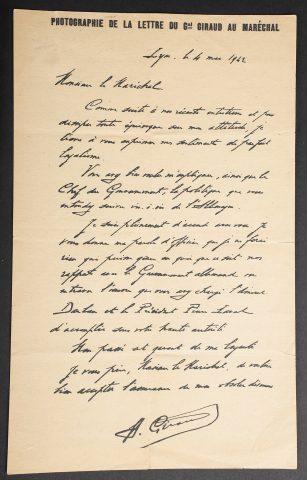 PHOTOGRAPHIE DE LA LETTRE DU Gal GIRAUD AU MARÉCHAL
Lyon, le 4 mai 1942
Monsieur le Maréchal,
Comme suite à nos récents entretiens et pour
dissiper toute équivoque sur mon attitude, je
tiens à vous exprimer mes sentiments de parfait
loyalisme.
Vous avez bien voulu m'expliquer, ainsi que le
Chef du Gouvernement, la politique que vous
entendez suivre vis-à-vis de l'Allemagne.
Je suis pleinement d'accord avec vous. Je
vous donne ma parole d'officier que je ne ferai
rien qui puisse gêner en quoi que ce soit nos
rapports avec le Gouvernement allemand ou
entraver l'œuvre que vous avez chargé l'Amiral
Darlan et le Président Pierre Laval
d'accomplir sous votre haute autorité.
Mon passé est garant de ma loyauté.
Je vous prie, Monsieur le Maréchal, de vouloir
bien accepter l'assurance de mon absolu dévouement
H. Giraud